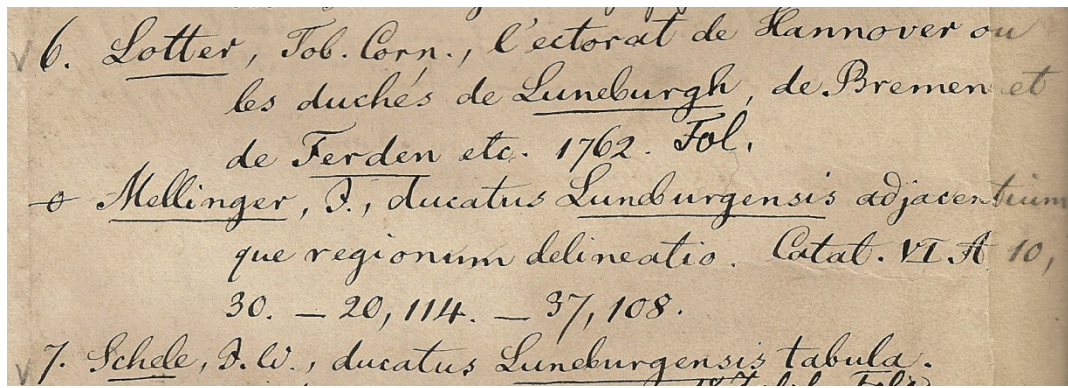 √ 6. Lotter, Tob. Corn., l'ectorat de Hannover ou
les duchés de Luneburgh, de Bremen et
de Ferden etc. 1762. Fol.
Mellinger, J., ducatus Lunæburgensis adjacentium
que regionum delineatio. Catat. VI. A 10,
30. — 20, 114. — 37, 108.
√ 7. Schele, J. W., ducatus Luneburgensis tabula.